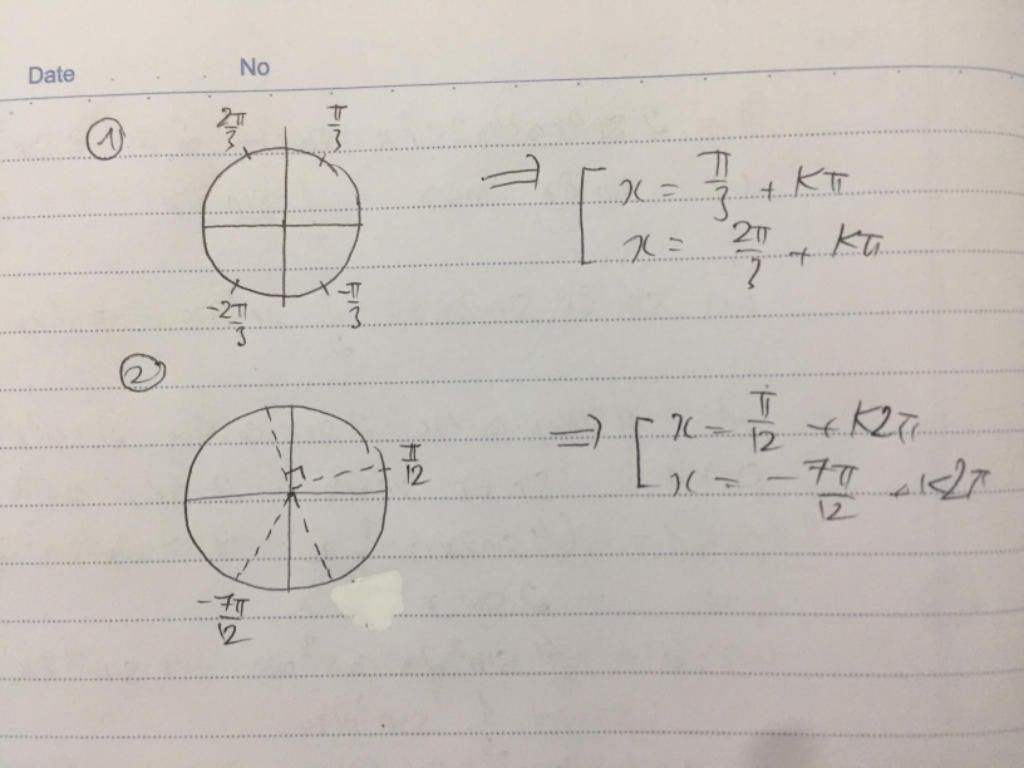 Date No
①
2π/3 π/3
-2π/3 -π/3
⇒ [ x = π/3 + Kπ
x = 2π/3 + Kπ
②
π/12
-7π/12
⇒ [ x = π/12 + K2π
x = -7π/12 + K2π